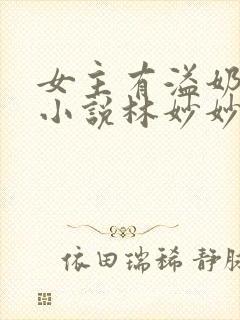 女主有溢奶
小说林妙妙
依田瑞稀 静